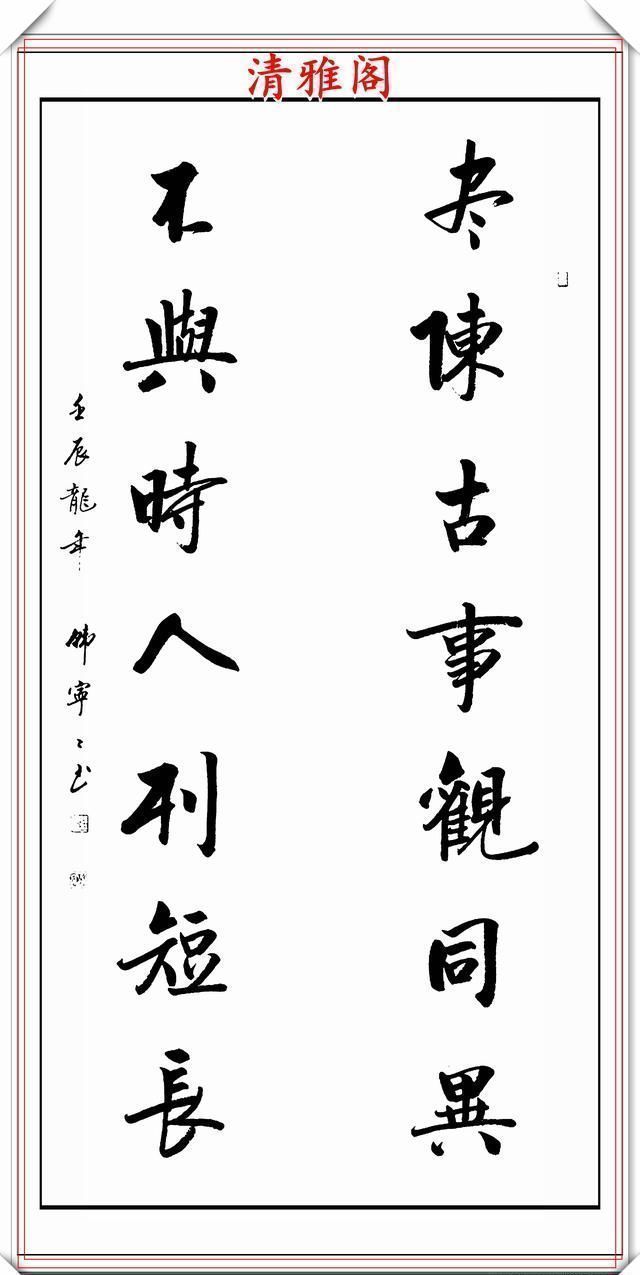 清雅阁
尽陳古事觀同異
不與時人列短長
壬辰龍年 韩寧寧书